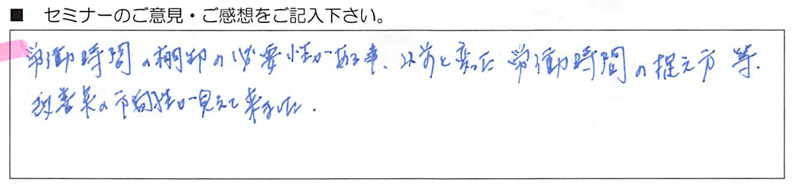 ■ セミナーのご意見・ご感想をご記入下さい。
労働時間の棚卸の必要性がある事、以前と変った労働時間の捉え方等、
改善策の方向性が見えて来ました。